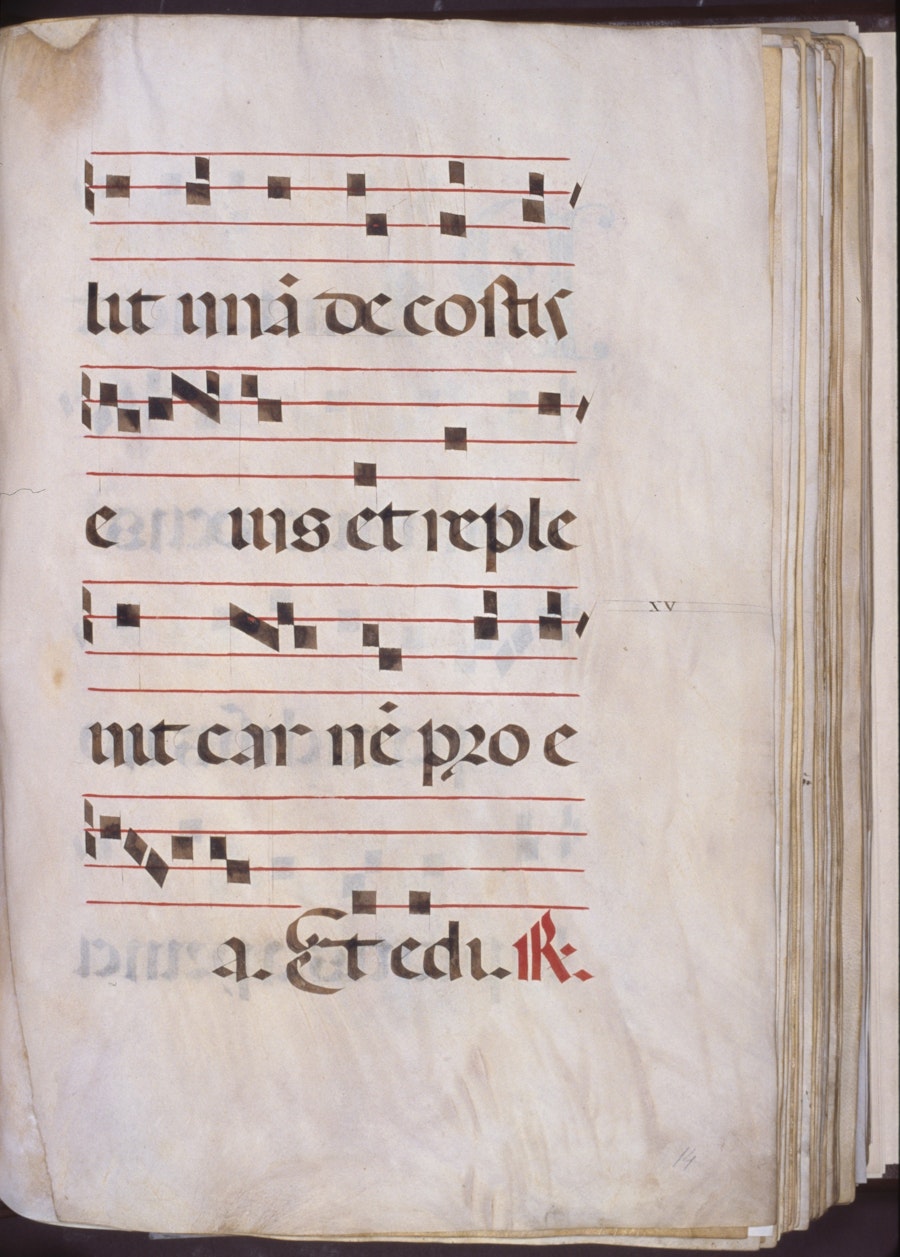 lit unā de costis
e ius et reple
uit car nē pro e
XV
a. Et edi. R:.
14